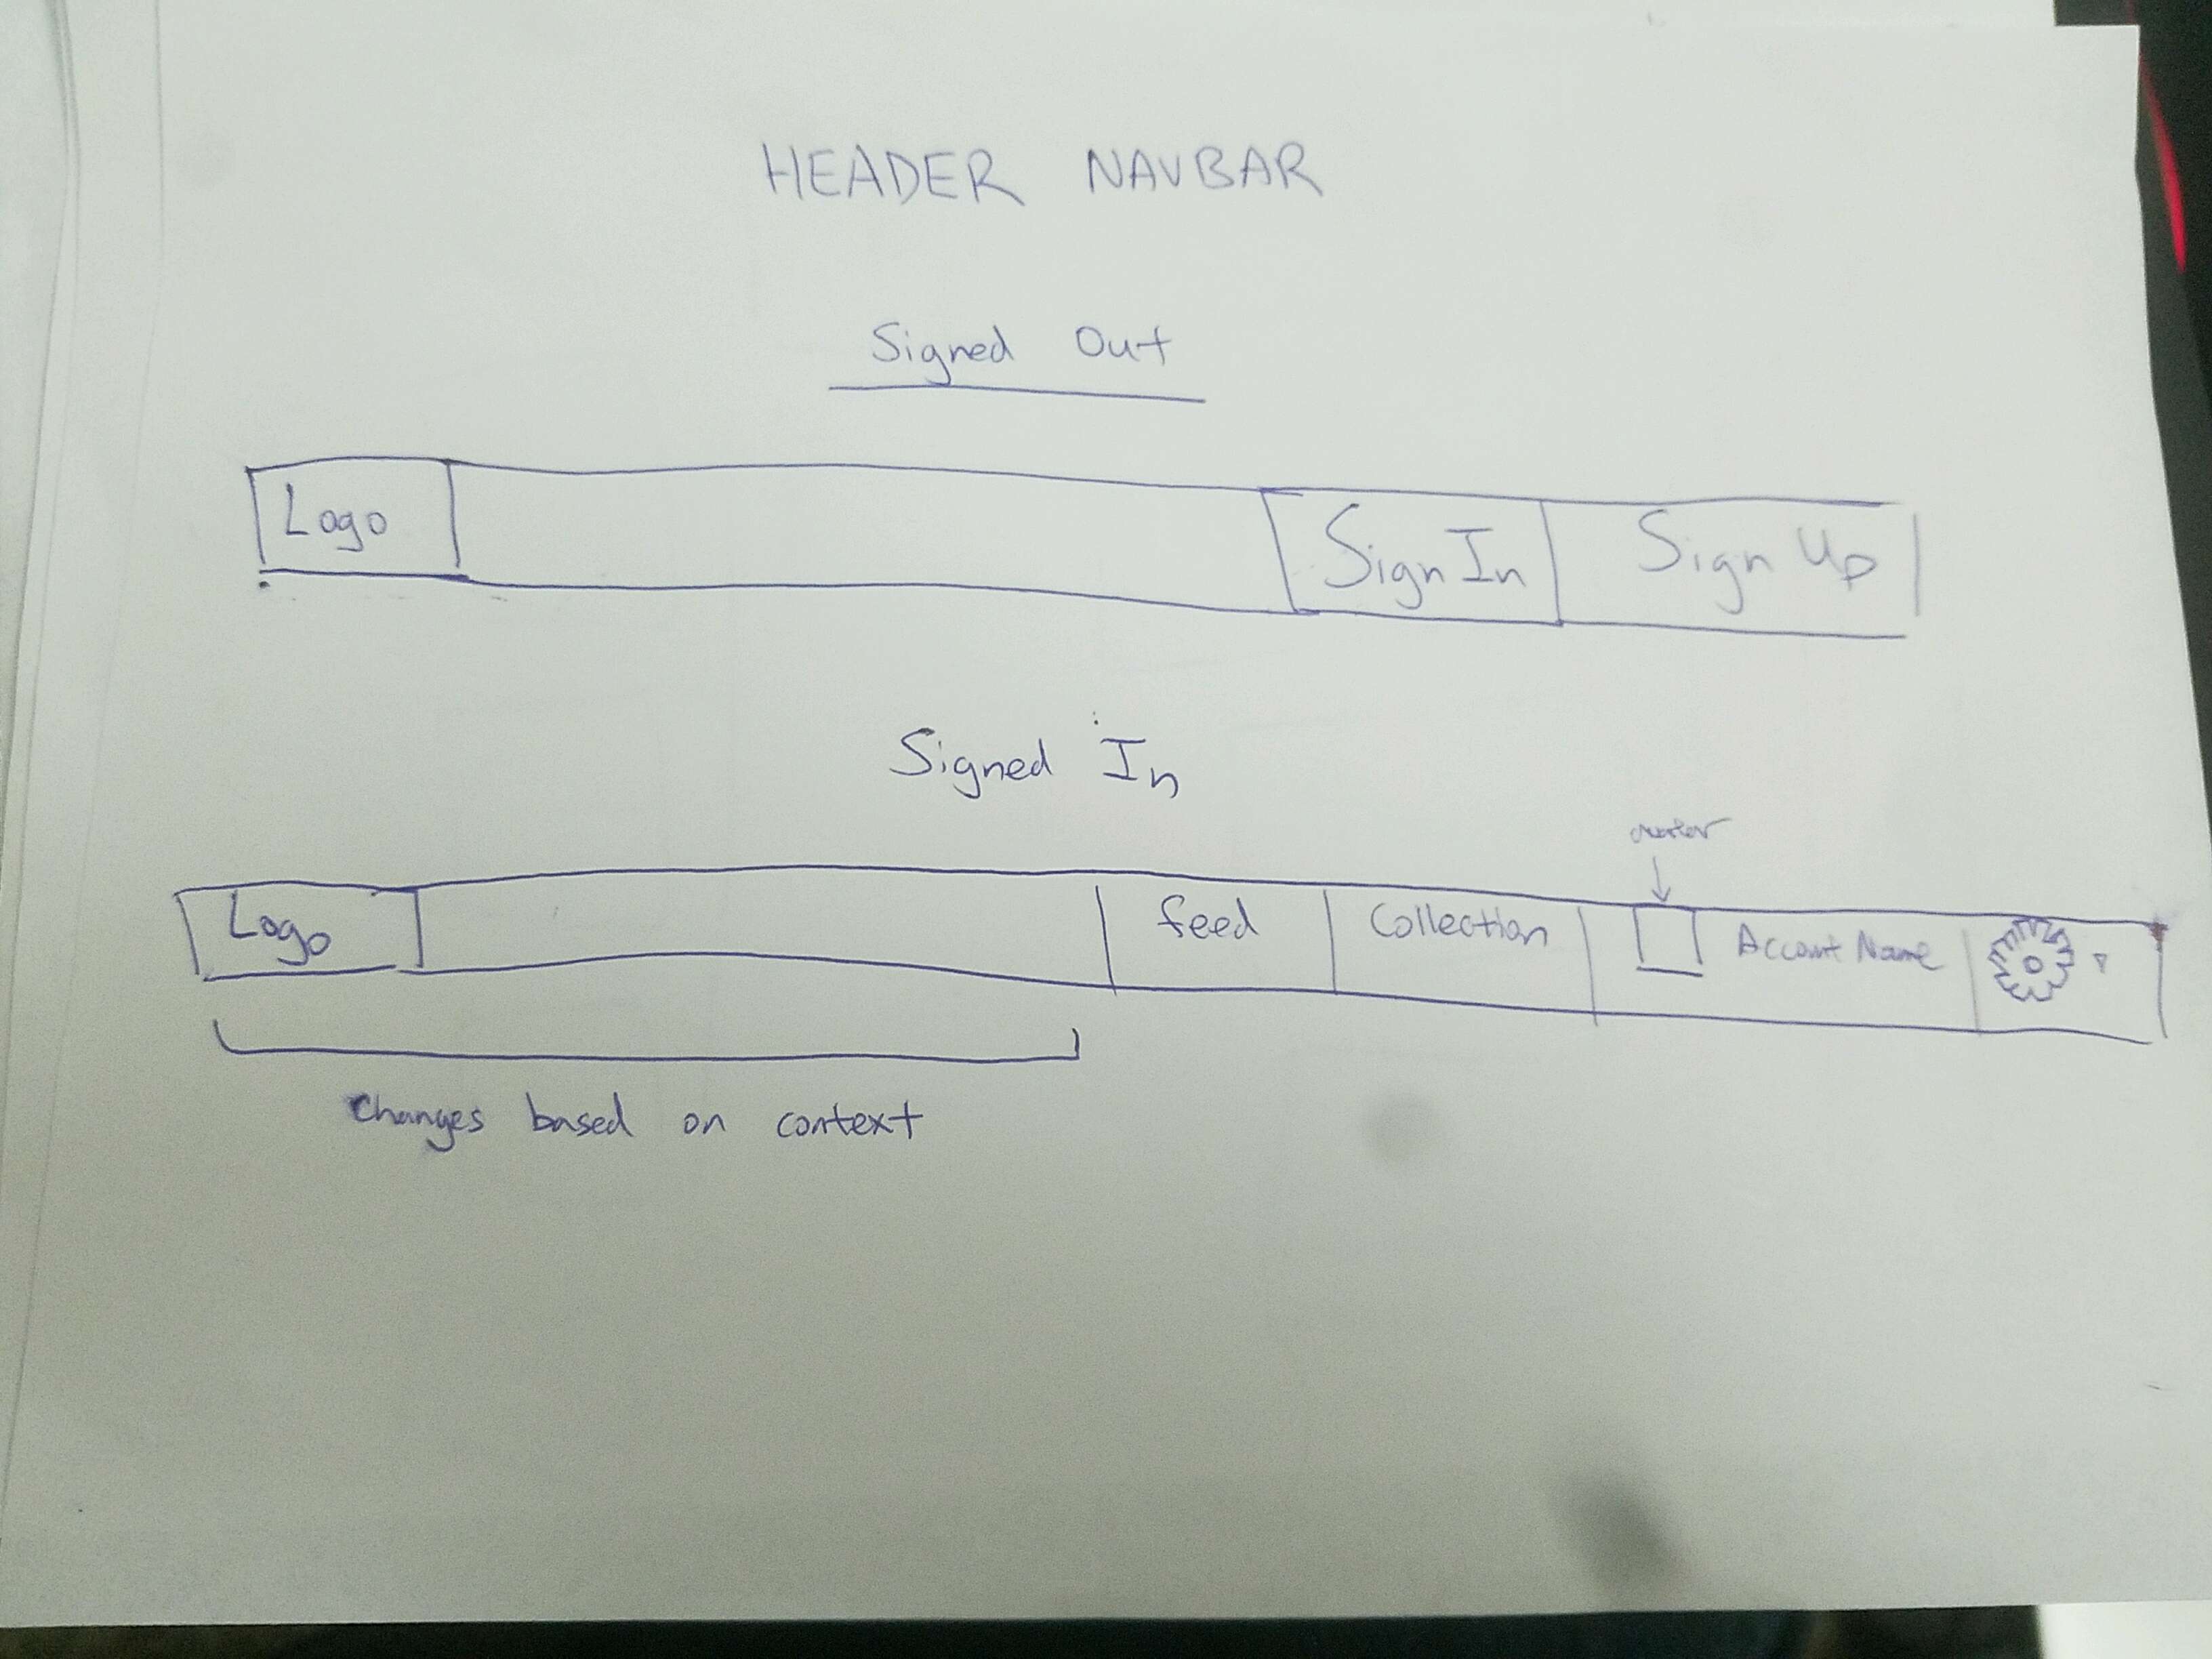 HEADER NAVBAR
Signed Out
Logo
Sign In
Sign Up
Signed In
avatar
Logo
feed
Collection
Account Name
Changes based on context